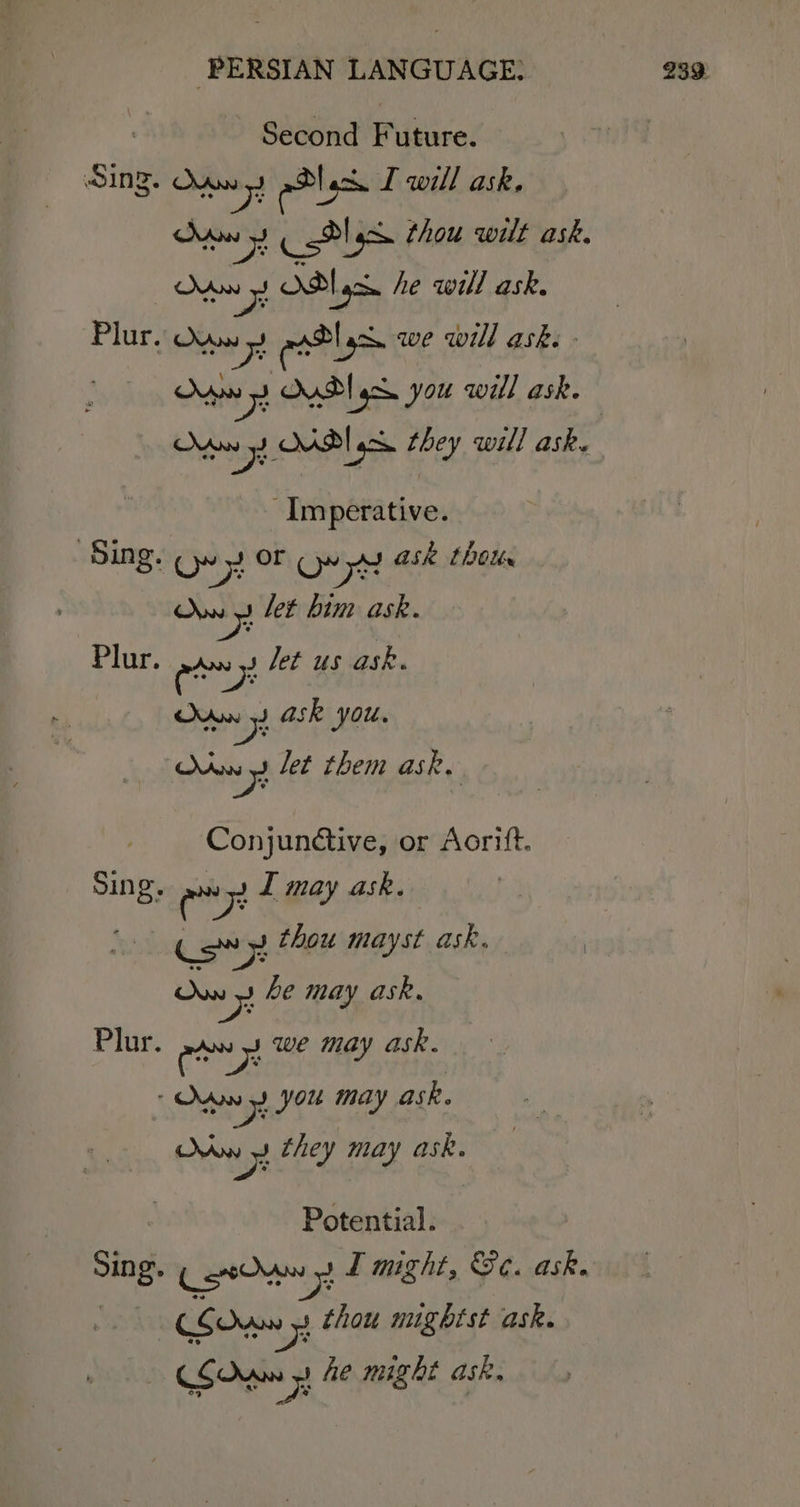 PERSIAN LANGUAGE. 239
Second Future.
Sing. خواهم پرسید I will ask.
خواهی پرسید thou wilt ask.
خواهد پرسید he will ask.
Plur. خواهیم پرسید we will ask.
خواهید پرسید you will ask.
خواهند پرسید they will ask.
Imperative.
Sing. پرس or بپرس ask thou.
پرسد let him ask.
Plur. پرسیم let us ask.
پرسید ask you.
پرسند let them ask.
Conjunctive, or Aorist.
Sing. پرسم I may ask.
پرسی thou mayst ask.
پرسد he may ask.
Plur. پرسیم we may ask.
پرسید you may ask.
پرسند they may ask.
Potential.
Sing. پرسیدمی I might, &c. ask.
پرسیدی thou mightst ask.
پرسیدی he might ask.